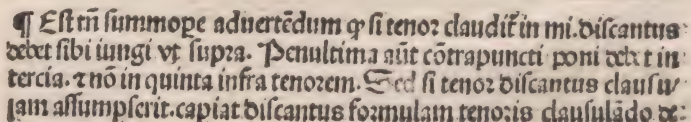 ¶ Eſt tñ ſummope aduertēdum ꝙ ſi tenoꝛ claudit᷑ in mi. diſcantus
debet ſibi iungi vt ſupꝛa. Penultima aūt cōtrapuncti poni debet in
tercia. ⁊ nō in quinta infra tenoꝛem. Sed ſi tenoꝛ diſcantus clauſu⸗
lam aſſumpſerit. capiat diſcantus foꝛmulam tenoꝛis clauſulādo de: